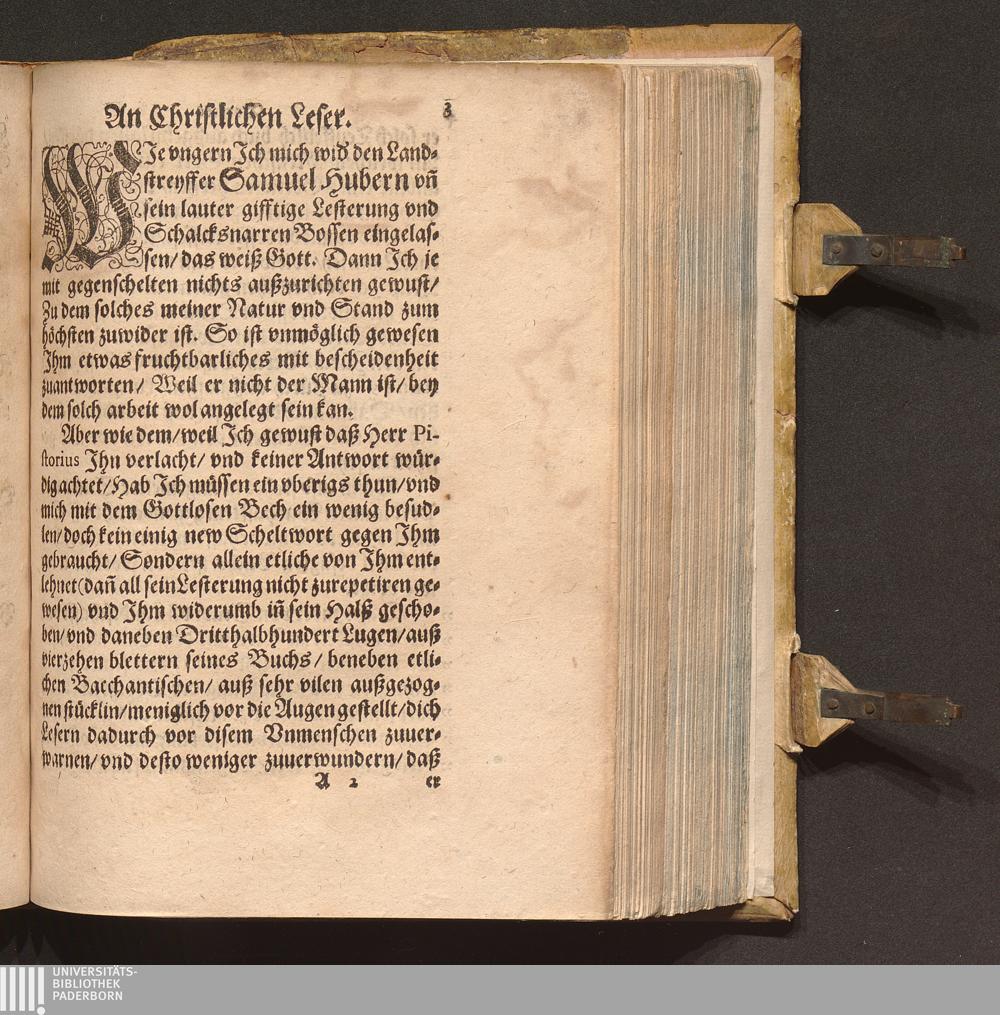 An Christlichen Leser.
3
WIe vngern Ich mich wid den Land⸗
streyffer Samuel Hubern vñ
sein lauter gifftige Lesterung vnd
Schalcksnarren Bossen eingelas⸗
sen/ das weiß Gott. Dann Ich je
mit gegenschelten nichts außzurichten gewust/
Zu dem solches meiner Natur vnd Stand zum
höchsten zuwider ist. So ist vnmöglich gewesen
Ihm etwas fruchtbarliches mit bescheidenheit
zuantworten/ Weil er nicht der Mann ist/ bey
dem solch arbeit wol angelegt sein kan.
Aber wie dem/ weil Ich gewust daß Herr Pi-
storius Ihn verlacht/ vnd keiner Antwort wür⸗
dig achtet/ Hab Ich müssen ein vberigs thun/ vnd
mich mit dem Gottlosen Bech ein wenig besud⸗
len/ doch kein einig new Scheltwort gegen Ihm
gebraucht/ Sondern allein etliche von Ihm ent⸗
lehnet (dañ all sein Lesterung nicht zurepetiren ge⸗
wesen) vnd Ihm widerumb iñ sein Halß gescho⸗
ben/ vnd daneben Dritthalbhundert Lugen/ auß
vierzehen blettern seines Buchs/ beneben etli⸗
chen Bacchantischen/ auß sehr vilen außgezog⸗
nen stücklin/ meniglich vor die Augen gestellt/ dich
Lesern dadurch vor disem Vnmenschen zuuer⸗
warnen/ vnd desto weniger zuuerwundern/ daß
A 2 er
UNIVERSITÄTS-
BIBLIOTHEK
PADERBORN